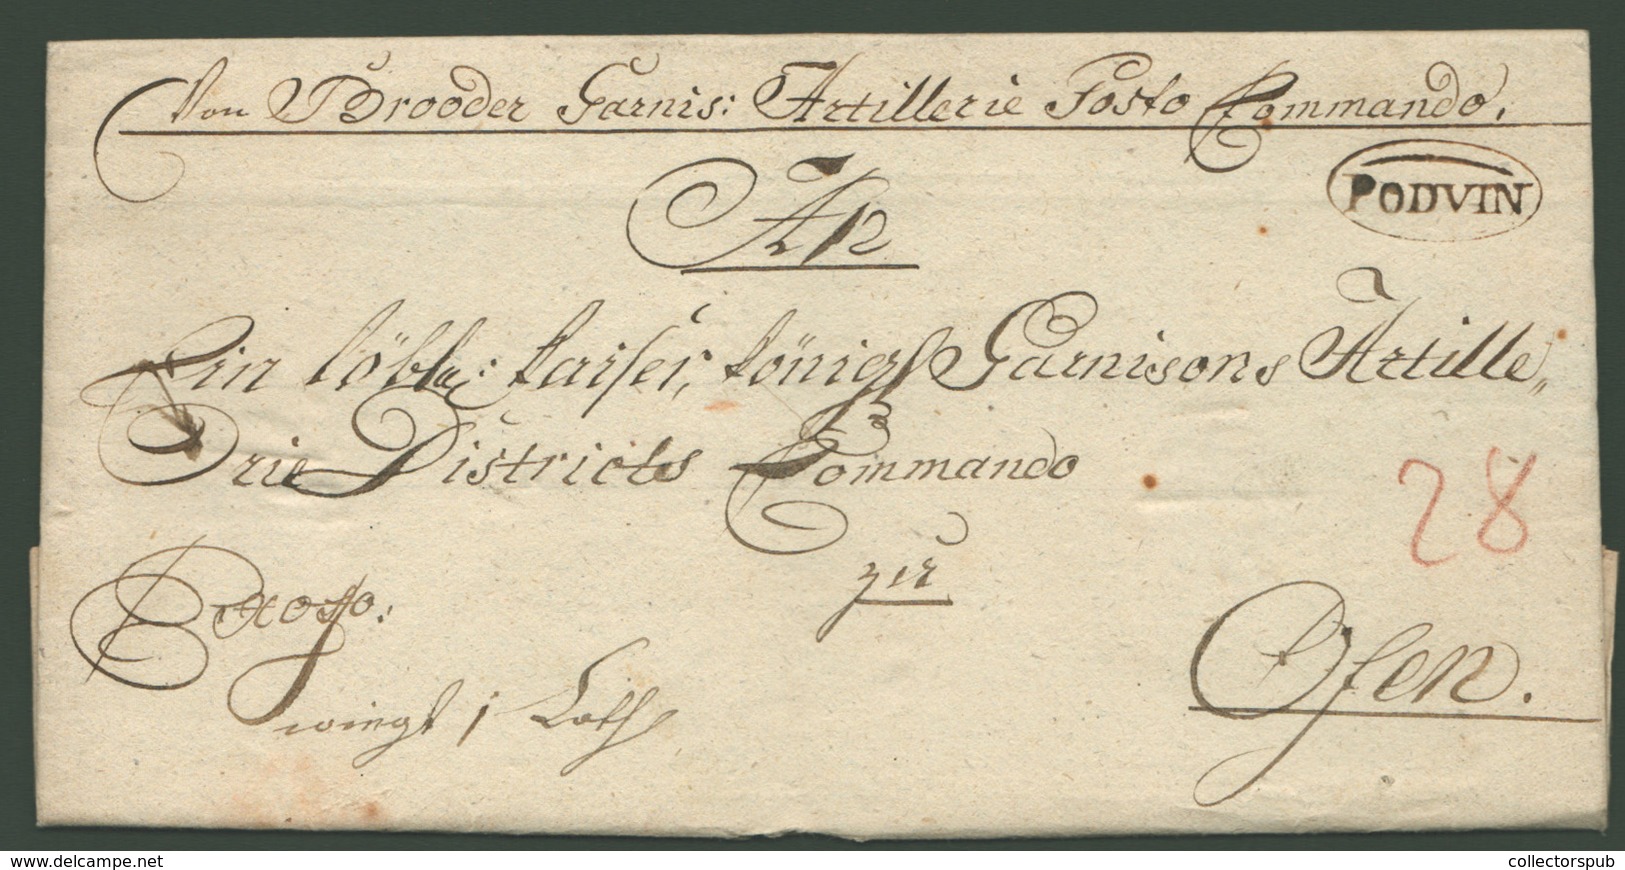 Von Brooder Garnis: Artillerie Posto Commando.
PODVIN
An
Ein löbl: kaiser, königl Garnisons Artille„
rie Districts Commando
28
zu
Exoffo:
Ofen.
wiegt 1 Loth
www.delcampe.net
collectorspub